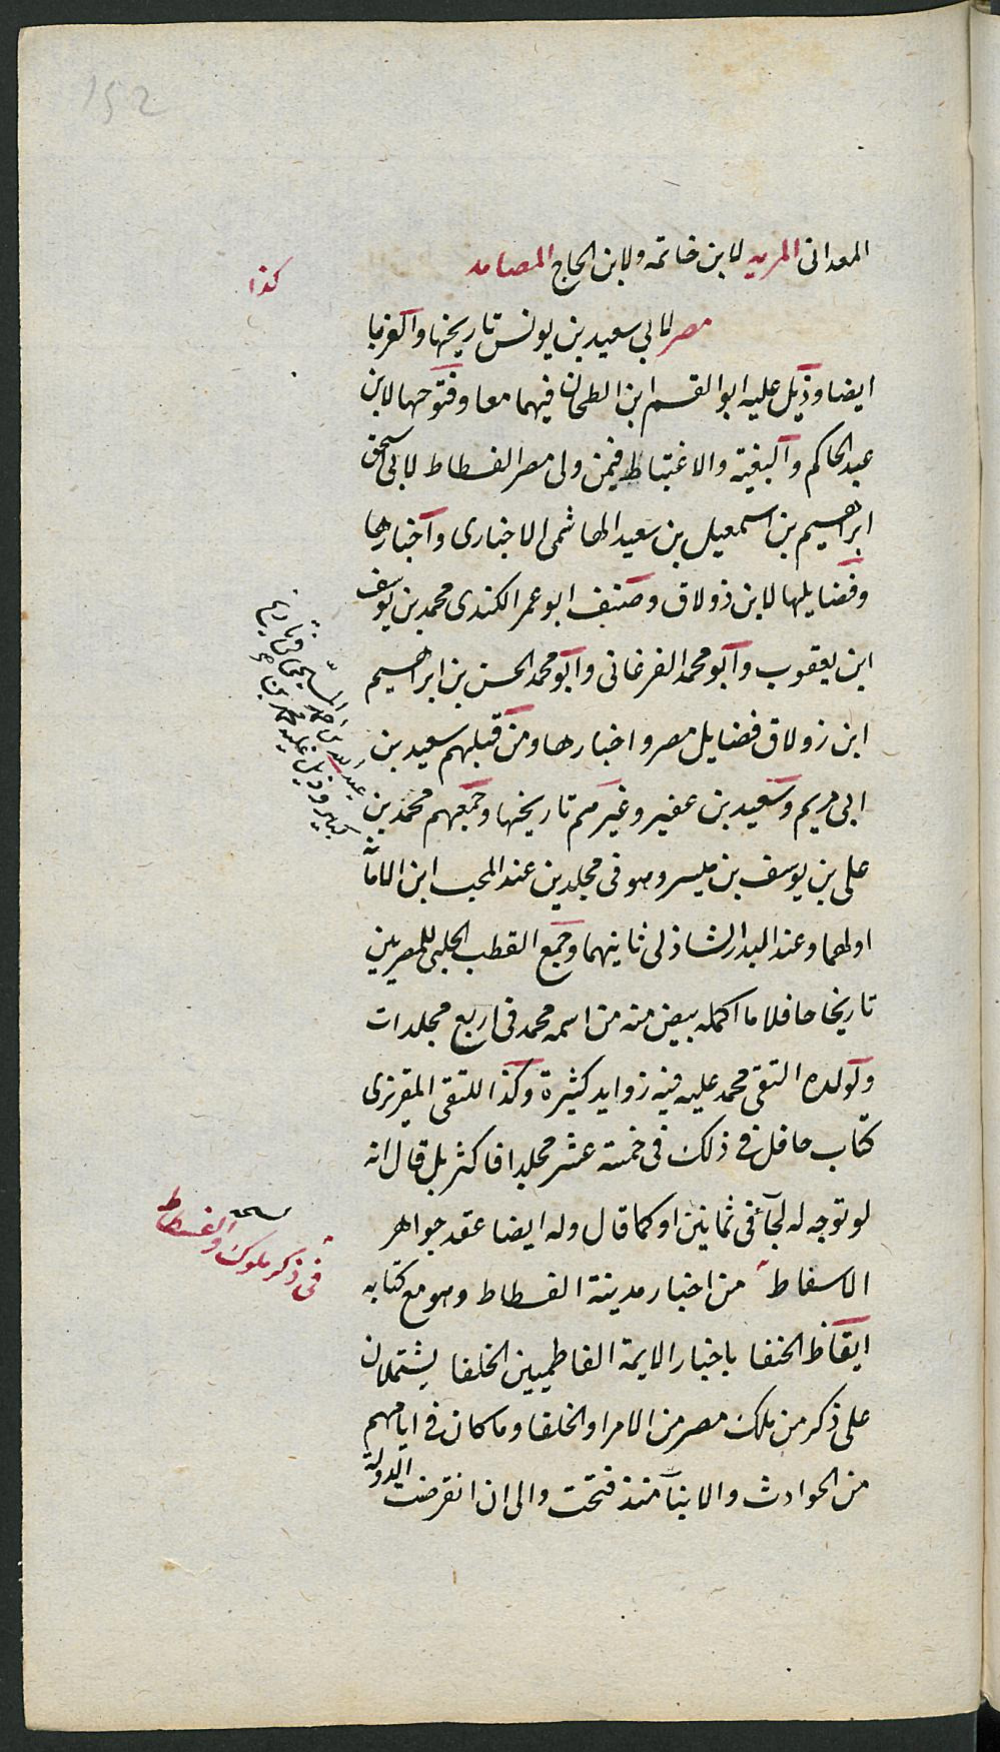 152
المعدانى المريه لابن خاتمه ولابن الحاج المصامد
كذا
مصر لابي سعيد بن يونس تاريخها والغربا
ايضا وذيل عليه ابو القسم ابن الطحان فيهما معا وفتوحها لابن
عبد الحاكم والبغية والاغتباط فيمن ولى مصر الفسطاط لابي اسحق
ابراهيم بن اسمعيل بن سعيد الهاشمى الاخبارى واخبارها
وفضايلها لابن ذولاق وصنف ابو عمر الكندى محمد بن يوسف
ابن يعقوب وابو محمد الفرغانى وابو محمد الحسن بن ابراهيم
ابن زولاق فضايل مصر واخبارها ومن قبلهم سعيد بن
ابى مريم وسعيد بن عفير وغيرهم تاريخها وجمعهم محمد بن
عبد الله بن احمد المسبحى فى تاريخ
كبير وذيل عليه محمد بن صح
على بن يوسف بن ميسر وهو فى مجلدين عند المحب ابن الامانة
اولهما وعند البدر الشاذلى ثانيهما وجمع القطب الحلبى للمصريين
تاريخا حافلا ما اكمله بيض منه من اسمه محمد فى اربع مجلدات
ولولده التقى محمد عليه فيه زوايد كثيرة وكذا للتقى المقريزى
كتاب حافل فى ذلك فى خمسة عشر مجلدا فاكثر بل قال انه
لو توجه له لجآ فى ثمانين او كما قال وله ايضا عقد جواهر
الاسفاط من اخبار مدينة الفسطاط وهو مع كتابه
فى ذكر ملوك والفسطاط نسخة
ايقاظ الحنفا باخبار الايمة الفاطميين الخلفا يشتملان
على ذكر من ملك مصر من الامرا والخلفا وما كان فى ايامهم
من الحوادث والانبآ منذ فتحت والى ان انقرضت الدولة